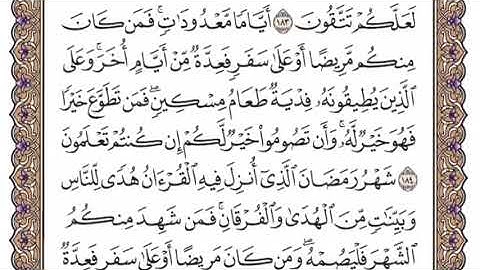 لَعَلَّكُمْ تَتَّقُونَ ١٨٣ أَيَّامًا مَّعْدُودَٰتٍ ۚ فَمَن كَانَ
مِنكُم مَّرِيضًا أَوْ عَلَىٰ سَفَرٍ فَعِدَّةٌ مِّنْ أَيَّامٍ أُخَرَ ۚ وَعَلَى
ٱلَّذِينَ يُطِيقُونَهُۥ فِدْيَةٌ طَعَامُ مِسْكِينٍ ۖ فَمَن تَطَوَّعَ خَيْرًا
فَهُوَ خَيْرٌ لَّهُۥ ۚ وَأَن تَصُومُوا۟ خَيْرٌ لَّكُمْ ۖ إِن كُنتُمْ تَعْلَمُونَ
١٨٤ شَهْرُ رَمَضَانَ ٱلَّذِىٓ أُنزِلَ فِيهِ ٱلْقُرْءَانُ هُدًى لِّلنَّاسِ
وَبَيِّنَٰتٍ مِّنَ ٱلْهُدَىٰ وَٱلْفُرْقَانِ ۚ فَمَن شَهِدَ مِنكُمُ
ٱلشَّهْرَ فَلْيَصُمْهُ ۖ وَمَن كَانَ مَرِيضًا أَوْ عَلَىٰ سَفَرٍ فَعِدَّةٌ